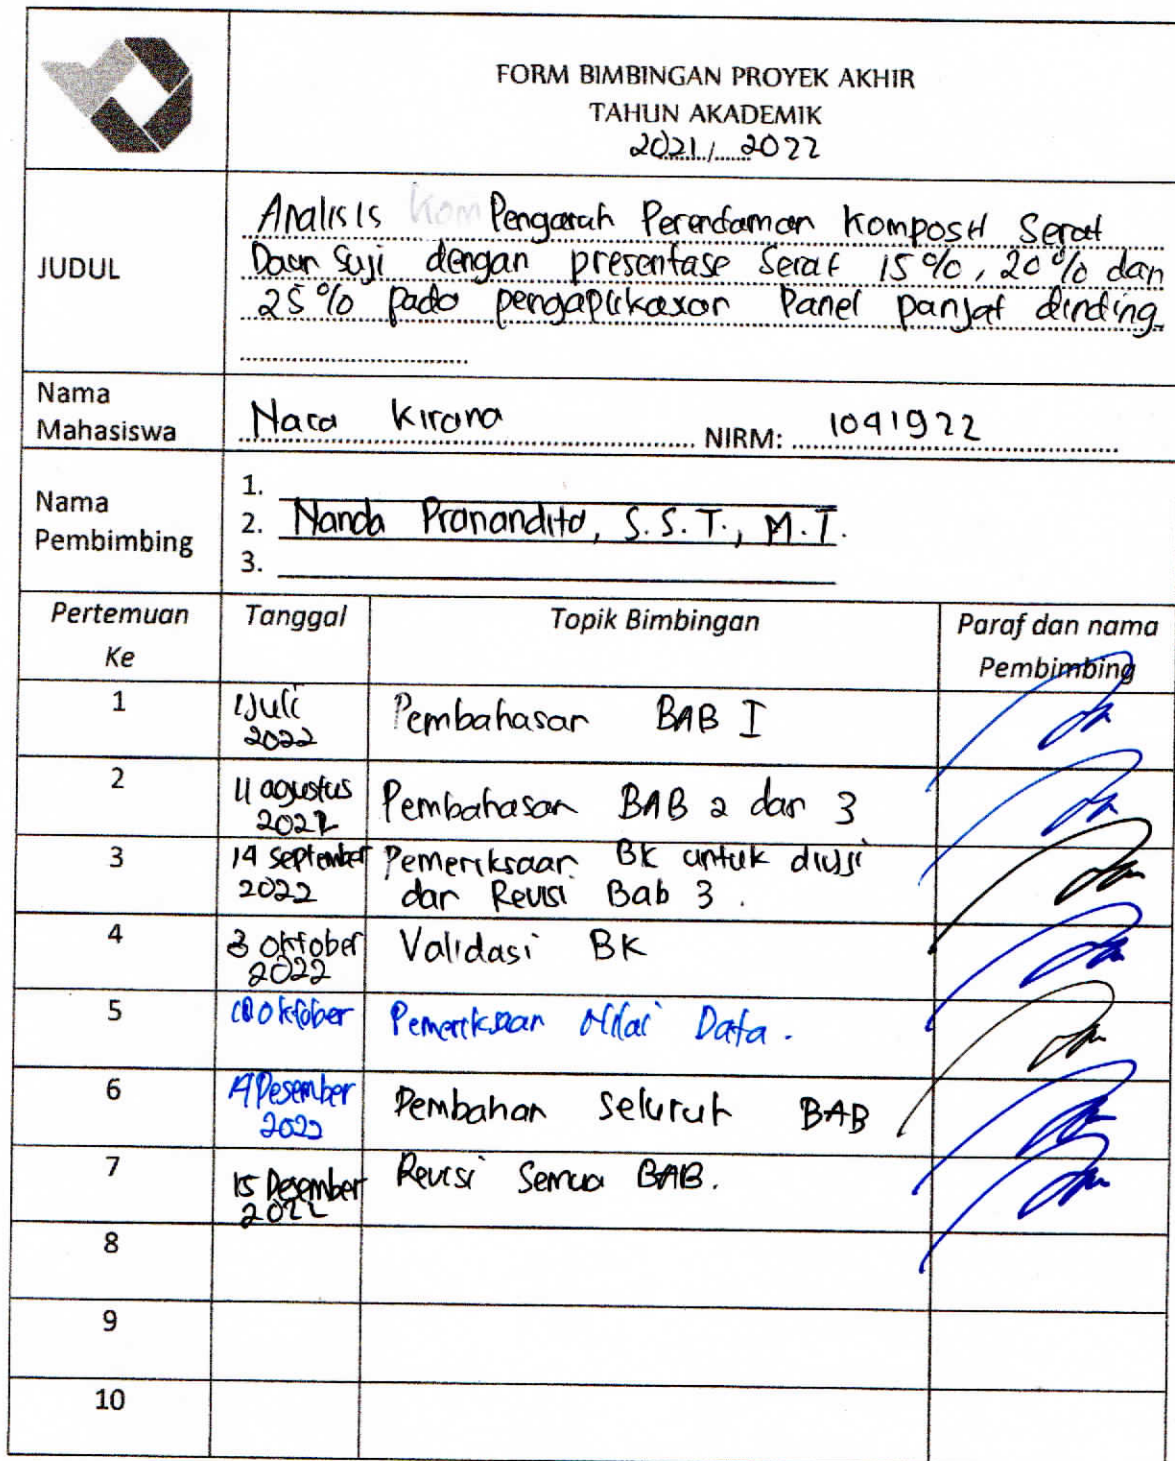 FORM BIMBINGAN PROYEK AKHIR
TAHUN AKADEMIK
2021 / 2022
JUDUL
Analisis Kom Pengaruh Perendaman Komposit Serat
Daun Suji dengan presentase Serat 15%, 20% dan
25% pada pengaplikasian Panel panjat dinding.
Nama
Mahasiswa
Nara Kirana NIRM: 1041922
Nama
Pembimbing
1.
2. Nanda Pranandita, S.S.T., M.T.
3.
Pertemuan
Ke
Tanggal
Topik Bimbingan
Paraf dan nama
Pembimbing
1
1 Juli
2022
Pembahasan BAB I
2
11 agustus
2022
Pembahasan BAB 2 dan 3
3
14 September
2022
Pemeriksaan BK untuk diuji
dan Revisi Bab 3.
4
3 Oktober
2022
Validasi BK
5
Oktober
Pemeriksaan Nilai Data.
6
Desember
2022
Pembahan seluruh BAB
7
15 Desember
2022
Revisi Semua BAB.
8
9
10